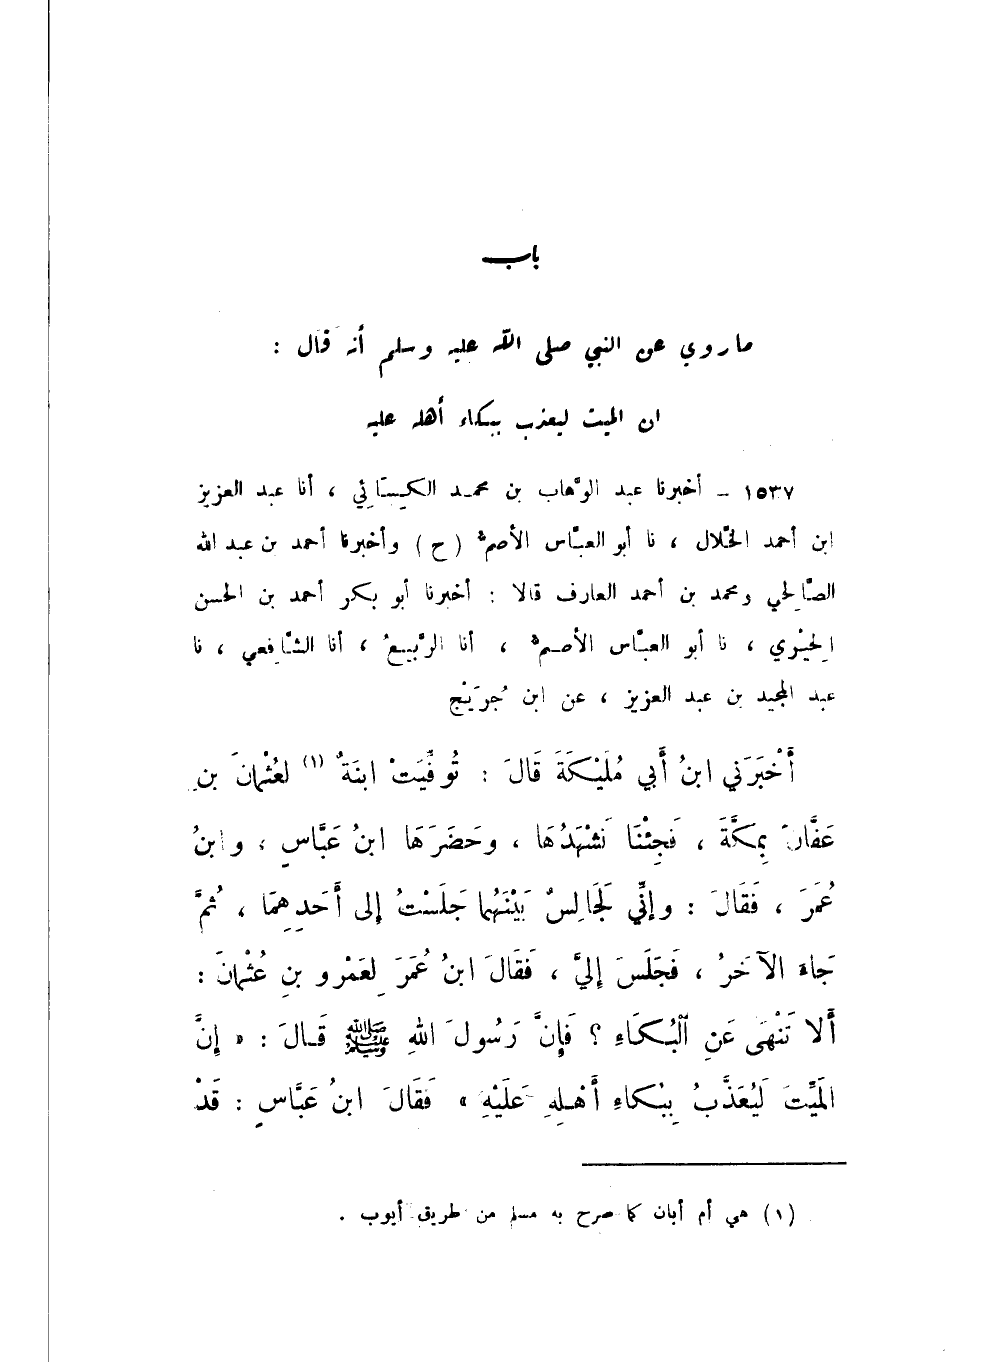 باب
ما روي عن النبي صلى الله عليه وسلم أنه قال :
ان الميت ليعذب ببكاء أهله عليه
١٥٣٧ – أخبرنا عبد الوهَّاب بن محمد الكِسَائي ، أنا عبد العزيز
ابن أحمد الخلَّال ، نا أبو العبَّاس الأصمُّ (ح) وأخبرنا أحمد بن عبد الله
الصَّالحي ومحمد بن أحمد العارف قالا : أخبرنا أبو بكر أحمد بن الحسن
الحِيْري ، نا أبو العبَّاس الأصمُّ ، أنا الرَّبيعُ ، أنا الشَّافعي ، نا
عبد المجيد بن عبد العزيز ، عن ابن جُرَيْج
أَخْبَرَني ابنُ أَبي مُلَيْكَةَ قَالَ : تُوفِّيَتْ ابنَةٌ (١) لعُثْمانَ بنِ
عَفَّانَ بِمَكَّةَ ، فَجِئْنَا نَشْهَدُهَا ، وحَضَرَهَا ابنُ عَبَّاسٍ ، وابنُ
عُمَرَ ، فَقَالَ : وإنِّي لَجَالِسٌ بَيْنَهُما جَلَسْتُ إلى أَحَدِهِمَا ، ثُمَّ
جَاءَ الآخَرُ ، فَجَلَسَ إليَّ ، فَقَالَ ابنُ عُمَرَ لِعَمْرو بنِ عُثْمانَ :
أَلا تَنْهَى عَنِ البُكَاءِ ؟ فَإِنَّ رَسُولَ اللهِ ﷺ قَالَ : « إِنَّ
المَيِّتَ لَيُعَذَّبُ بِبُكاءِ أَهْلِهِ عَلَيْهِ » فَقَالَ ابنُ عَبَّاسٍ : قَدْ
(١) هي أم أبان كما صرح به مسلم من طريق أيوب .